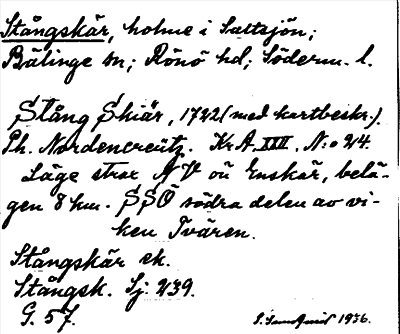 Stångskär, holme i Saltsjön;
Bälinge sn; Rönö hd; Söderm. l.
Stång Skiär, 1722 (med kartbeskr.).
Ph. Nordencreütz. Kr A. XXII. N:o 24.
Läge strax NV om Enskär, belä-
gen 8 km. SSO södra delen av vi-
ken Tvären.
Stångskär ek.
Stångsk. Sj. 239.
G. 57.
1936.